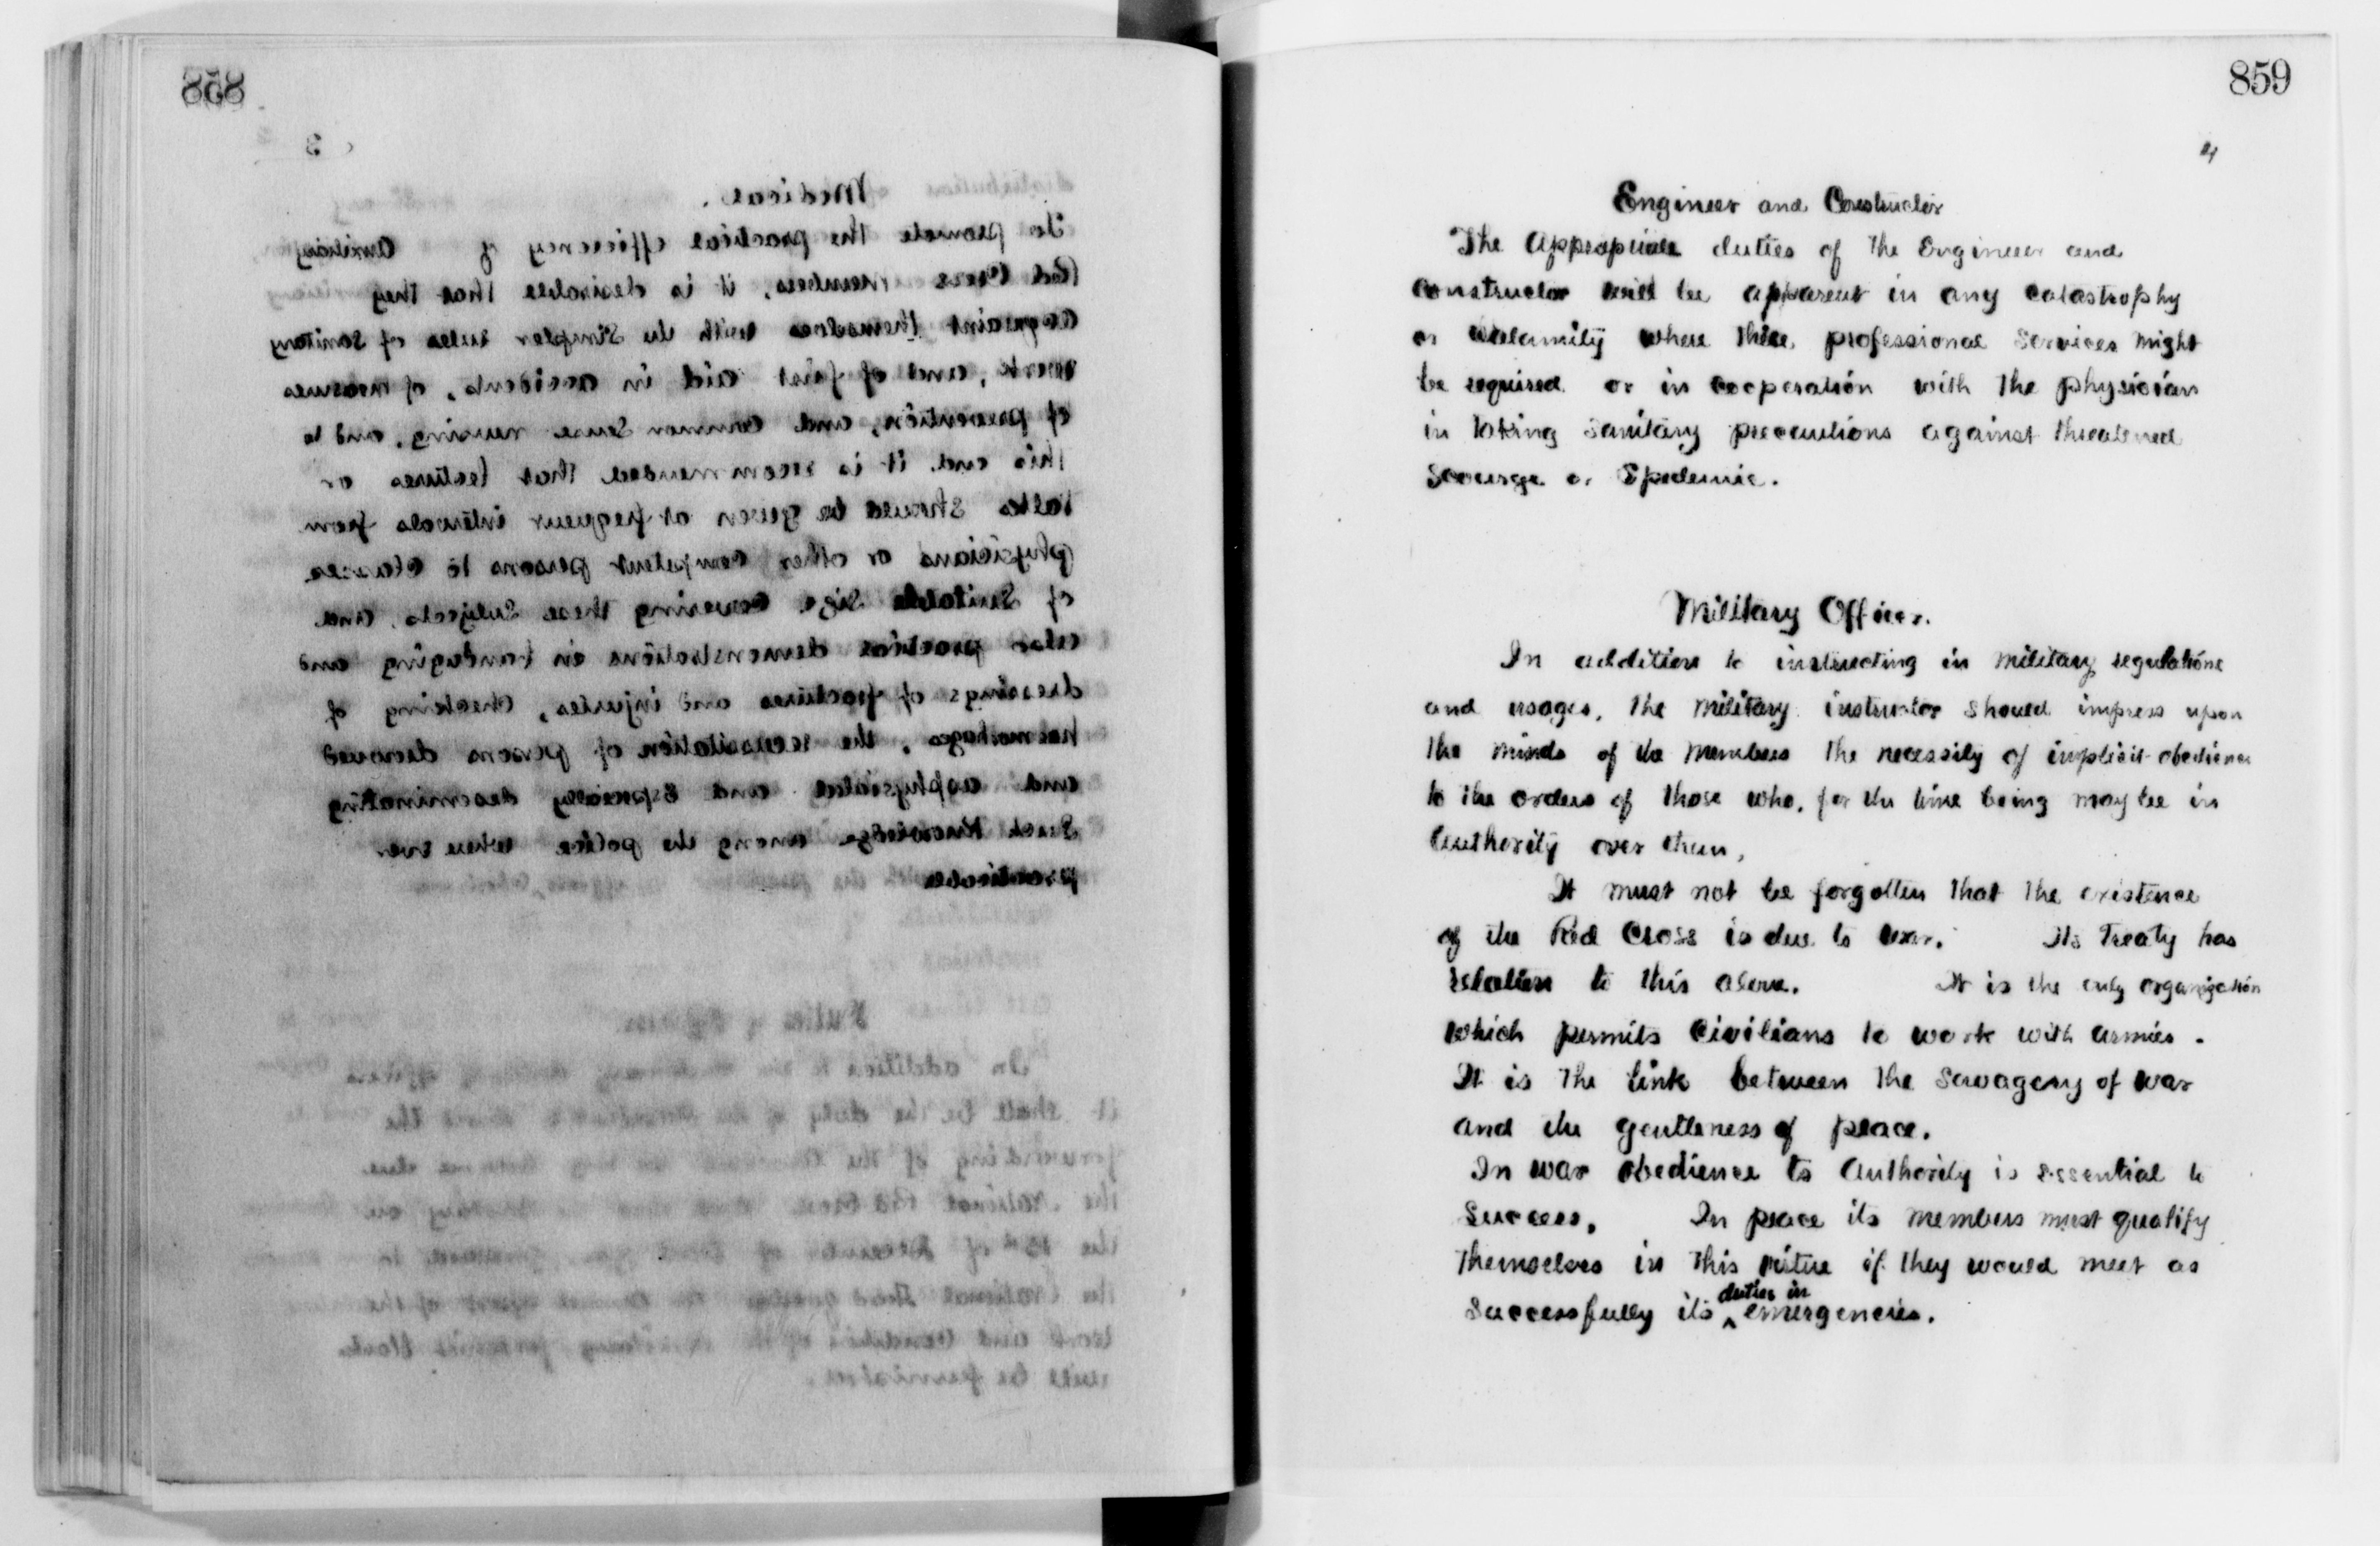 858
3
Medical.
To promote the practical efficiency of Auxiliary
Red Cross members, it is desirable that they
acquaint themselves with the simpler rules of sanitary
work, and of first aid in accidents, of measures
of prevention, and common sense nursing, and to
this end it is recommended that lectures or
talks should be given at frequent intervals from
physicians or other competent persons to classes
of suitable size covering these subjects, and
also practical demonstrations in bandaging and
dressings of fractures and injuries, checking of
hemorhages, the resuscitation of persons drowned
and asphyxiated and especially deseminating
such knowledge among the police where ever
practicable
In addition to the
it shall be the duty of the
forwarding of the
the National Red Cross
the 15th of December of
the National
work and condition of the
will be furnished.
859
4
Engineer and Constructor
The Appropriate duties of the Engineer and
Constructor will be apparent in any catastrophy
or calamity where their professional services might
be required or in cooperation with the physician
in taking sanitary precautions against threatened
Scourge or Epidemic.
Military Officer.
In addition to instructing in military regulations
and usages, the military instructor should impress upon
the minds of the members the necessity of implicit obedience
to the orders of those who, for the time being may be in
authority over them,
It must not be forgotten that the existence
of the Red Cross is due to war. Its Treaty has
relation to this alone. It is the only organization
which permits Civilians to work with armies.
It is the link between the savagery of war
and the gentleness of peace.
In war obedience to authority is essential to
success. In peace its members must qualify
themselves in this virtue if they would meet as
successfully its ^ duties in emergencies.